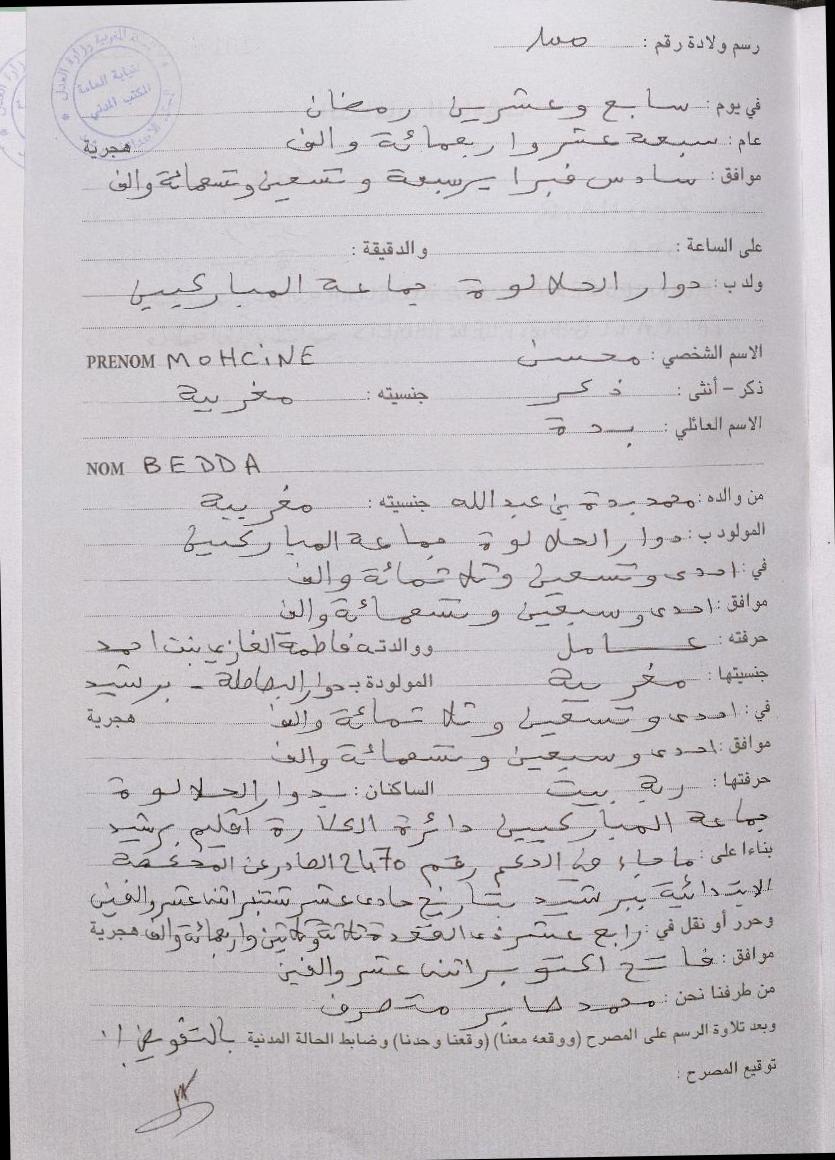 رسم ولادة رقم :
في يوم : سابع وعشرين رمضان
عام : سبعة عشر واربعمائة والف هجرية
موافق : سادس فبراير سبعة وتسعين وتسعمائة والف
على الساعة : والدقيقة :
ولد ب : دوار الحلالوة جماعة المباركيين
الاسم الشخصي : محسن PRENOM MOHCiNE
ذكر – أنثى : ذكر جنسيته : مغربية
الاسم العائلي : بدة
NOM BEDDA
من والده : محمد بدة بن عبد الله جنسيته : مغربية
المولود ب : دوار الحلالوة جماعة المباركيين
في : احدى وتسعين وثلاثمائة والف
موافق : احدى وسبعين وتسعمائة والف
حرفته : عامل ووالدته فاطمة الغازي بنت احمد
جنسيتها : مغربية المولودة ب دوار - برشيد
في : احدى وتسعين وثلاثمائة والف هجرية
موافق : احدى وسبعين وتسعمائة والف
حرفتها : ربة بيت الساكنان : بدوار الحلالوة
جماعة المباركيين دائرة الكارة اقليم برشيد
بناءا على : ما جاء في الحكم رقم 2470 الصادر عن المحكمة
الابتدائية ببرشيد بتاريخ حادي عشر شتنبر اثنا عشر والفين
وحرر أو نقل في : رابع عشر ذي القعدة ثلاثة وثلاثين واربعمائة والف هجرية
موافق : فاتح اكتوبر اثنا عشر والفين
من طرفنا نحن : محمد صابر متصرف
وبعد تلاوة الرسم على المصرح (ووقعه معنا) (وقعنا وحدنا) وضابط الحالة المدنية بالتفويض
توقيع المصرح :